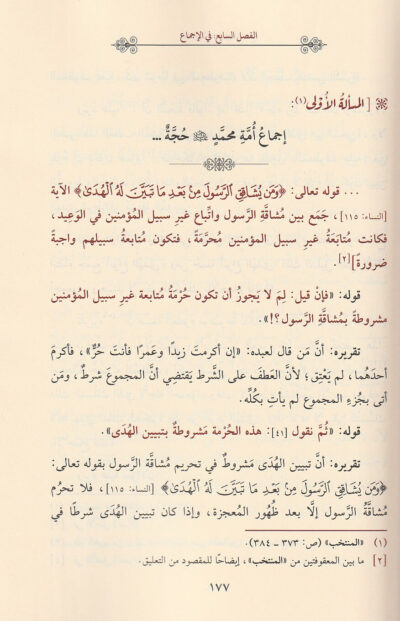 الفصل السابع: في الإجماع
[المسألة الأولى(١):
إجماعُ أُمَّةِ محمَّدٍ ﷺ حُجَّةٌ ...
... قوله تعالى: ﴿وَمَن يُشَاقِقِ ٱلرَّسُولَ مِنۢ بَعْدِ مَا تَبَيَّنَ لَهُ ٱلْهُدَىٰ﴾ الآية
[النساء: ١١٥]، جَمَع بين مُشاقَّةِ الرَّسول واتِّباع غيرِ سبيل المُؤمنين في الوَعِيد،
فكانت مُتابَعةُ غيرِ سبيل المؤمنين مُحرَّمةً، فتكون مُتابعةُ سبيلهم واجبةً
ضرورةً][٢].
قوله: «فإنْ قيل: لِمَ لا يَجوزُ أن تكون حُرْمَةُ مُتابعة غيرِ سبيل المُؤمنين
مشروطةً بمُشاقَّةِ الرَّسول؟!».
تقريره: أنَّ مَن قال لعبده: «إن أكرمتَ زيدًا وعَمرًا فأنتَ حُرٌّ»، فأكرمَ
أحدَهُما، لم يَعْتِق؛ لأنَّ العَطفَ على الشَّرط يَقتضي أنَّ المجموعَ شرطٌ، ومَن
أتى بجُزءِ المجموع لم يأتِ بكُلِّه.
قوله: «ثُمَّ نقول [٤١]: هذه الحُرْمة مَشروطةٌ بتبيين الهُدَى».
تقريره: أنَّ تبيين الهُدَى مَشروطٌ في تحريم مُشاقَّة الرَّسول بقوله تعالى:
﴿وَمَن يُشَاقِقِ ٱلرَّسُولَ مِنۢ بَعْدِ مَا تَبَيَّنَ لَهُ ٱلْهُدَىٰ﴾ [النساء: ١١٥]، فلا تحرُم
مشاقَّةُ الرَّسول إلَّا بعد ظُهُور المُعجزة، وإذا كان تبيين الهُدَى شرطًا في
(١) «المنتخب» (ص: ٣٧٣ - ٣٨٤).
[٢] ما بين المعقوفتين من «المنتخب»، إيضاحًا للمقصود من التعليق.
١٧٧